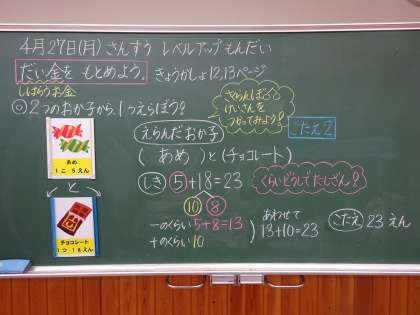 4月27日(月) さんすう レベルアップもんだい
だい金を もとめよう。 きょうかしょ12,13ページ
しはらうお金
◎2つのおか子から、1つえらぼう!
さくらんぼ
けいさんを
つかってみよう!
こたえ2
えらんだおか子
(あめ)と(チョコレート)
あめ
1こ 5えん
と
チョコレート
1つ 18えん
しき 5+18=23
くらいどうしでたしざん?
10 8
一のくらい 5+8=13
十のくらい 10
あわせて
13+10=23
こたえ 23えん